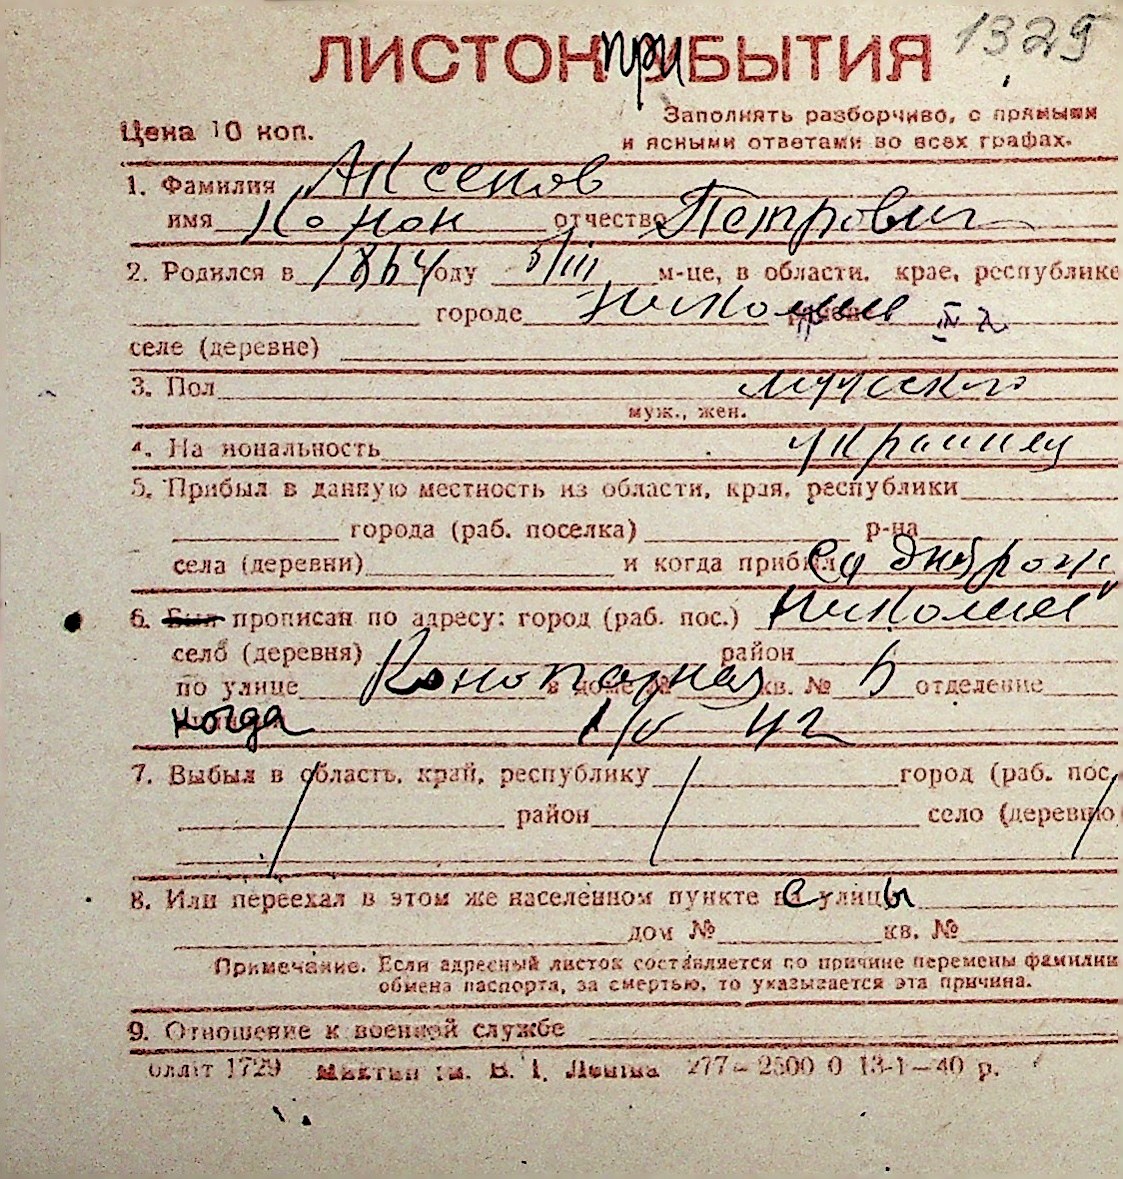 1329
ЛИСТОК ПРИБЫТИЯ
Цена 10 коп.
Заполнять разборчиво, с прямыми
и ясными ответами во всех графах.
1. Фамилия Аксенов
имя Конон отчество Петрович
2. Родился в 1864 году 5/III м-це, в области, крае, республике
городе Никополе
селе (деревне)
3. Пол мужского
муж., жен.
4. Национальность украинец
5. Прибыл в данную местность из области, края, республики
города (раб. поселка) р-на
села (деревни) и когда прибыл со дня рож
6. Был прописан по адресу: город (раб. пос.) Никополе
село (деревня) район
по улице в доме № кв. № 5 отделение
когда 42
7. Выбыл в область, край, республику город (раб. пос.
район село (деревню)
8. Или переехал в этом же населенном пункте с улицы
дом № кв. №
Примечание. Если адресный листок составляется по причине перемены фамилии
обмена паспорта, за смертью, то указывается эта причина.
9. Отношение к военной службе
1729 В. І. Леніна 277—2500 0 13-1—40 р.